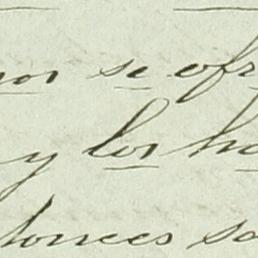 nor se ofr
y los ha
tonces sa